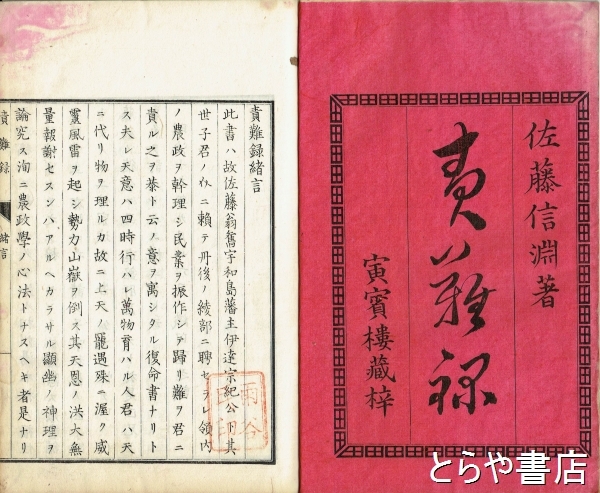 佐藤信淵著
責難録
寅賓樓藏梓
責難録緒言
此書ハ故佐藤翁舊宇和島藩主伊達宗紀公下其
世子君ノ為ニ賴テ丹後ノ綾部ニ聘セラレ領内
ノ農政ヲ幹理シ民業ヲ振作シテ歸リ難ヲ君ニ
責ル之ヲ恭ト云ノ意ヲ寓シタル復命書ナリト
ス夫レ天意ハ四時行ハレ萬物育ハル人君ハ天
ニ代リ物ヲ理ルカ故ニ上天ノ寵遇殊ニ渥ク威
靈風雷ヲ起シ勢力山嶽ヲ倒ス其天恩ノ洪大無
量報謝セスンハアルヘカラサル顯幽ノ神理ヲ
論究ス洵ニ農政學ノ心法トナスヘキ者是ナリ
責難録
緒言
とらや書店